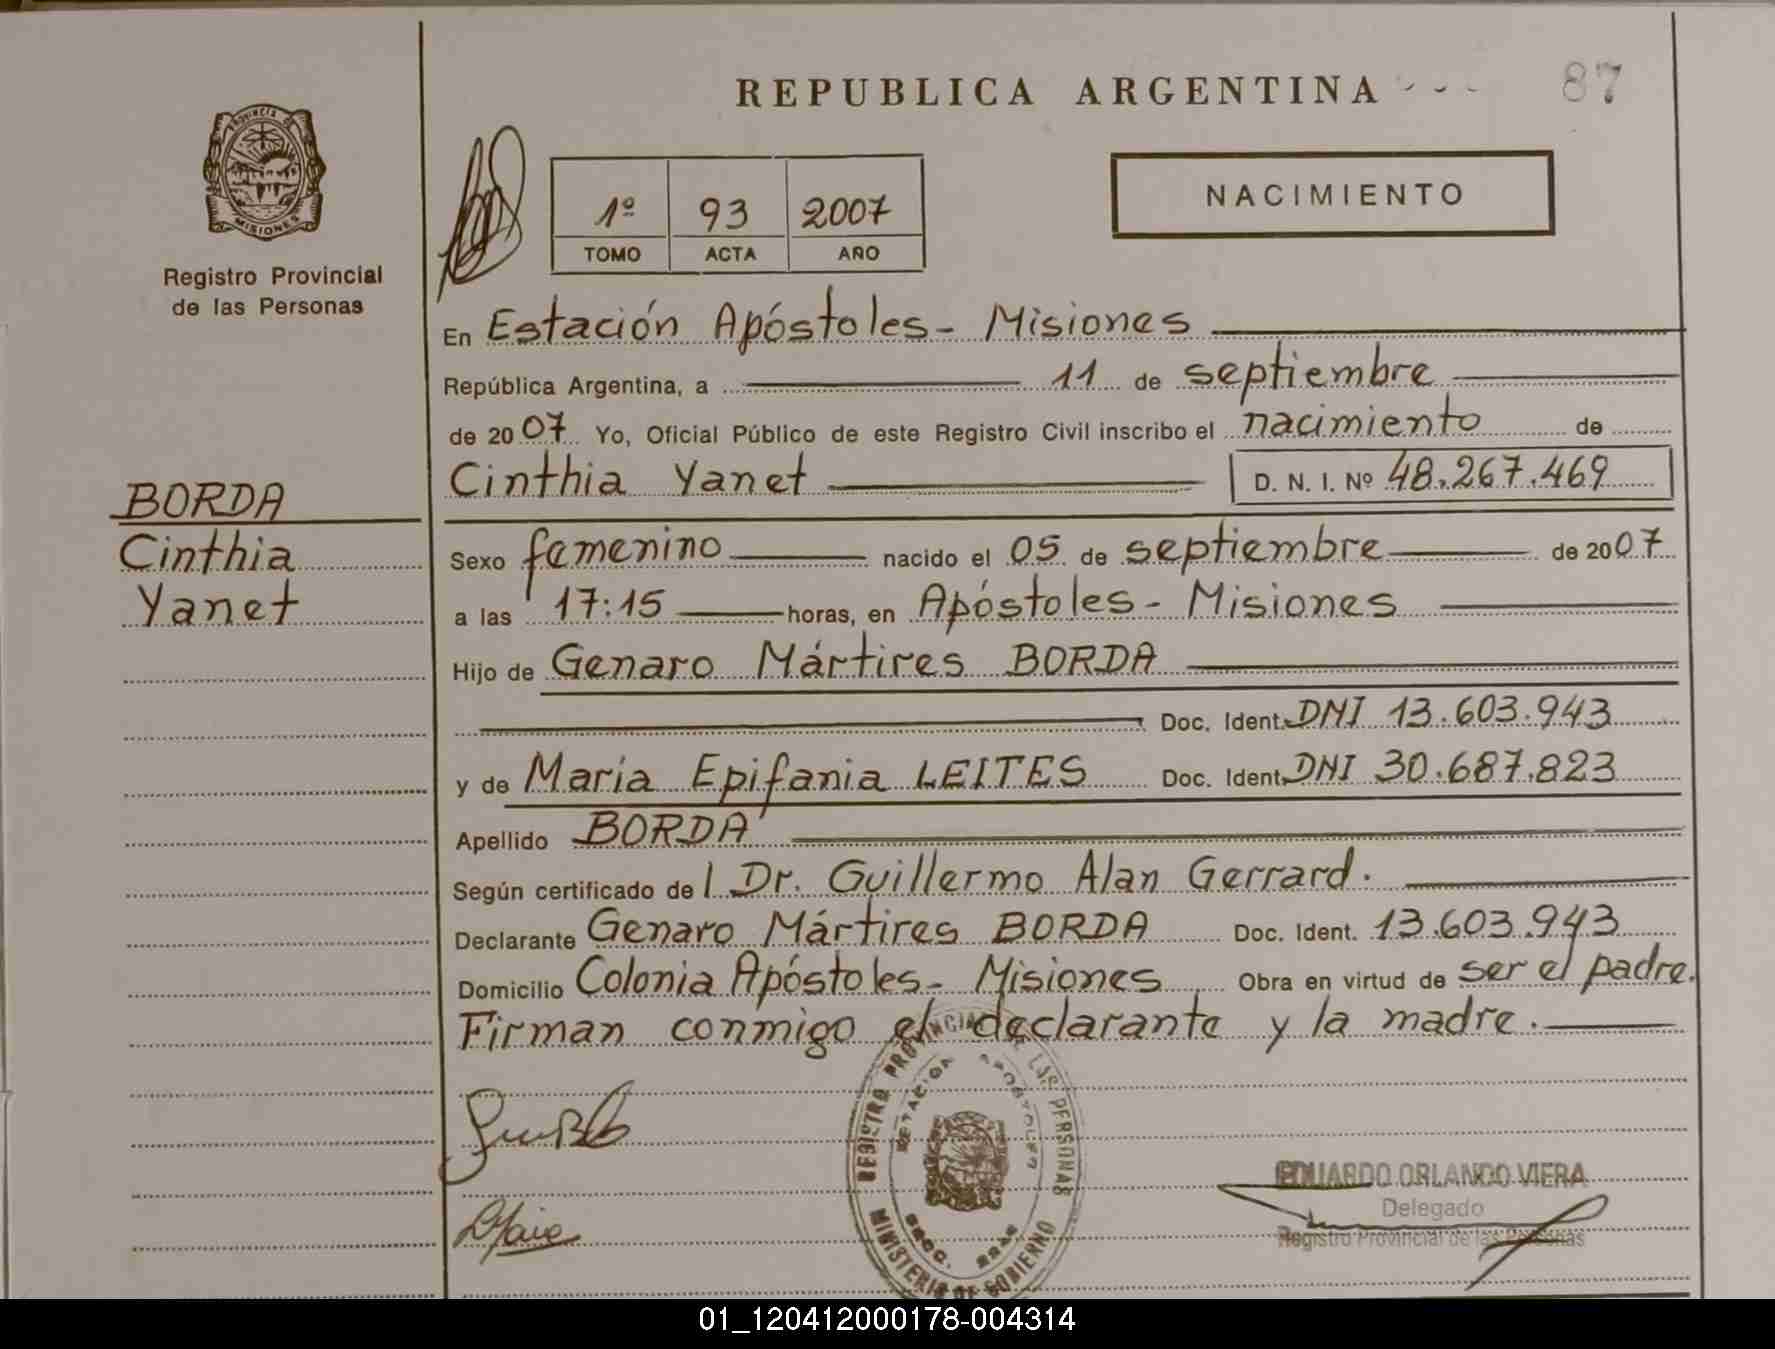 REPUBLICA ARGENTINA
87
Provincia de
MISIONES
Registro Provincial
de las Personas
1º 93 2007
TOMO ACTA AÑO
NACIMIENTO
En Estación Apóstoles - Misiones
República Argentina, a 11 de septiembre
de 2007 Yo, Oficial Público de este Registro Civil inscribo el nacimiento de
Cinthia Yanet D. N. I. Nº 48.267.469
BORDA
Cinthia
Yanet
Sexo femenino nacido el 05 de septiembre de 2007
a las 17:15 horas, en Apóstoles - Misiones
Hijo de Genaro Mártires BORDA
Doc. Ident. DNI 13.603.943
y de María Epifania LEITES Doc. Ident. DNI 30.687.823
Apellido BORDA
Según certificado del Dr. Guillermo Alan Gerrard.
Declarante Genaro Mártires BORDA Doc. Ident. 13.603.943
Domicilio Colonia Apóstoles - Misiones Obra en virtud de ser el padre.
Firman conmigo el declarante y la madre.
REGISTRO PROVINCIAL DE LAS PERSONAS
ESTACION APOSTOLES
MINISTERIO DE GOBIERNO
EDUARDO ORLANDO VIERA
Delegado
Registro Provincial de las Personas
01_120412000178-004314